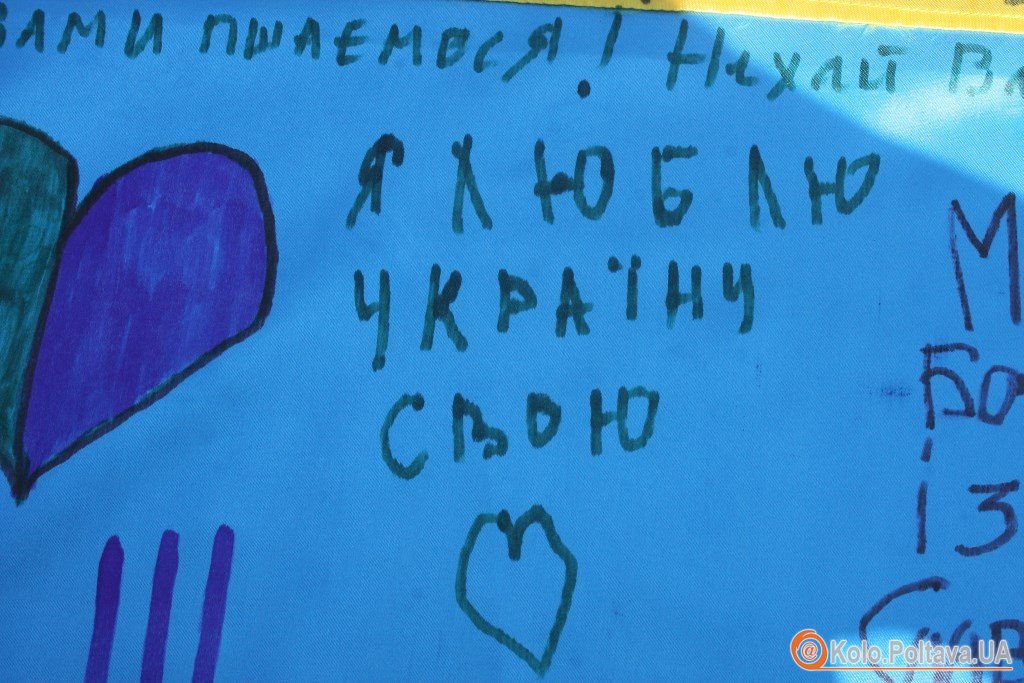 ВАМИ ПИШАЄМОСЯ! НЕХАЙ
Я ЛЮБЛЮ
УКРАЇНУ
СВОЮ
М
БО
ІЗ
@Kolo.Poltava.UA